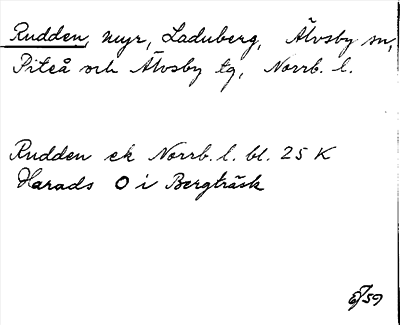 Rudden, myr, Laduberg, Älvsby sn,
Piteå och Älvsby tg, Norrb. l.
Rudden ek Norrb. l. bl. 25 K
Harads O i Bergträsk